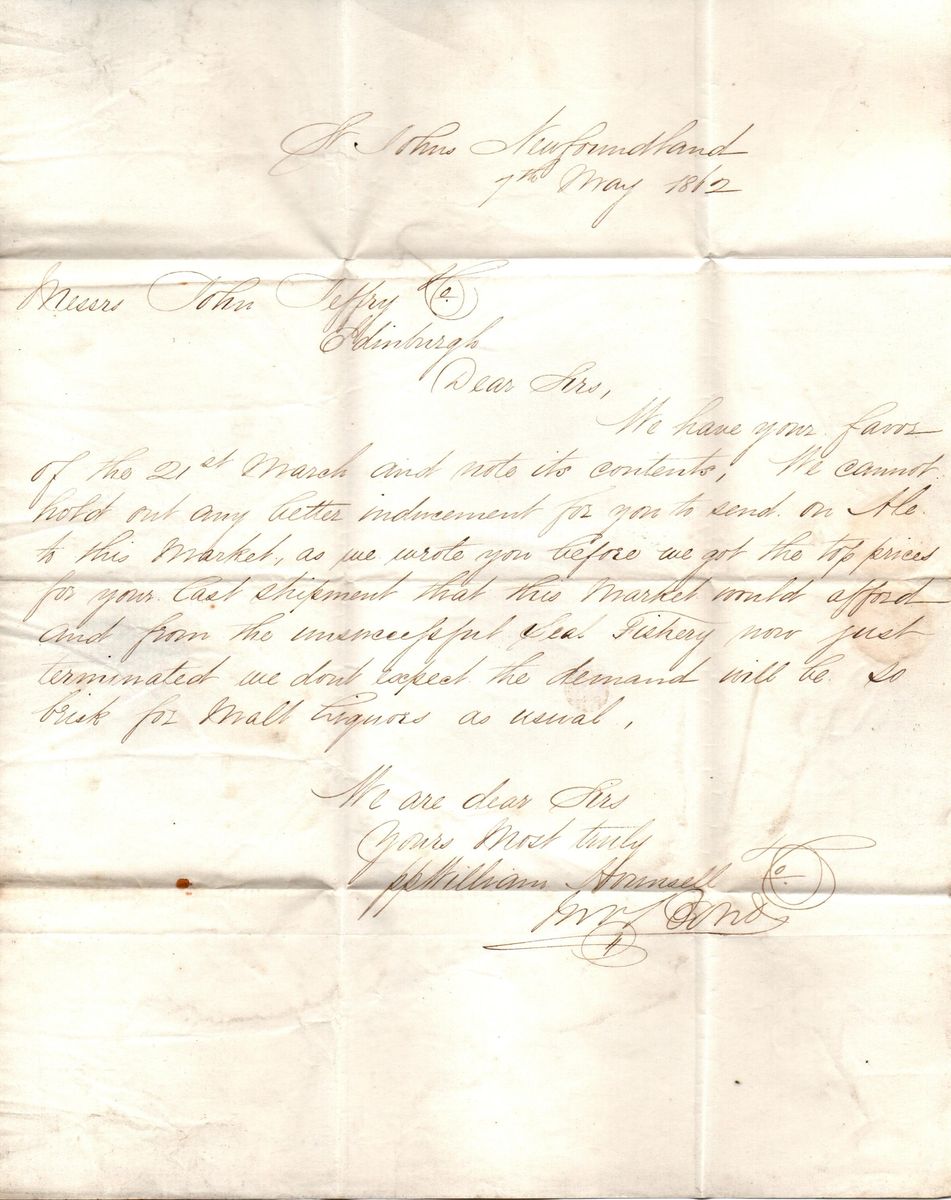 St. Johns Newfoundland
7th May 1862
Messrs John Jeffry & Co.
Edinburgh
Dear Sirs,
We have your favor
of the 21st March and note its contents, We cannot
hold out any better inducement for you to send on Ale
to this Market, as we wrote you before we got the top prices
for your last shipment that this Market would afford
and from the unsuccessful Seal Fishery now just
terminated we dont expect the demand will be so
brisk for Malt Liquors as usual,
We are dear Sirs
Yours Most truly
pp William Hounsell & Co.
Bond